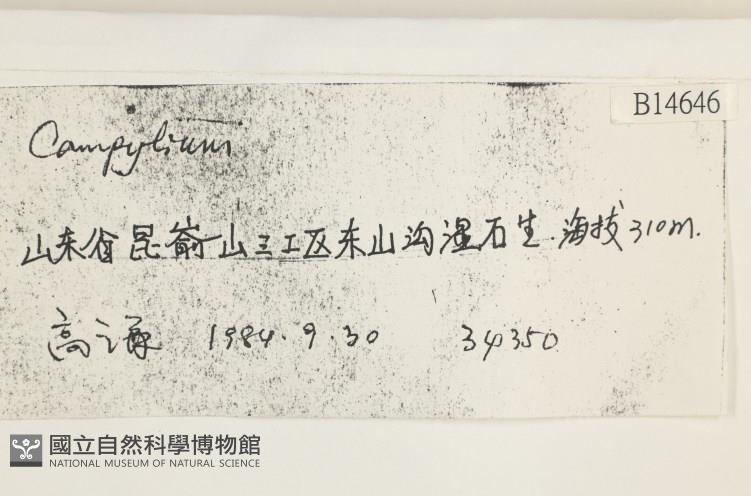 B14646
Campylium
山东省昆嵛山三工区东山沟湿石生.海拔310m.
高谦 1984.9.30 34350
國立自然科學博物館
NATIONAL MUSEUM OF NATURAL SCIENCE